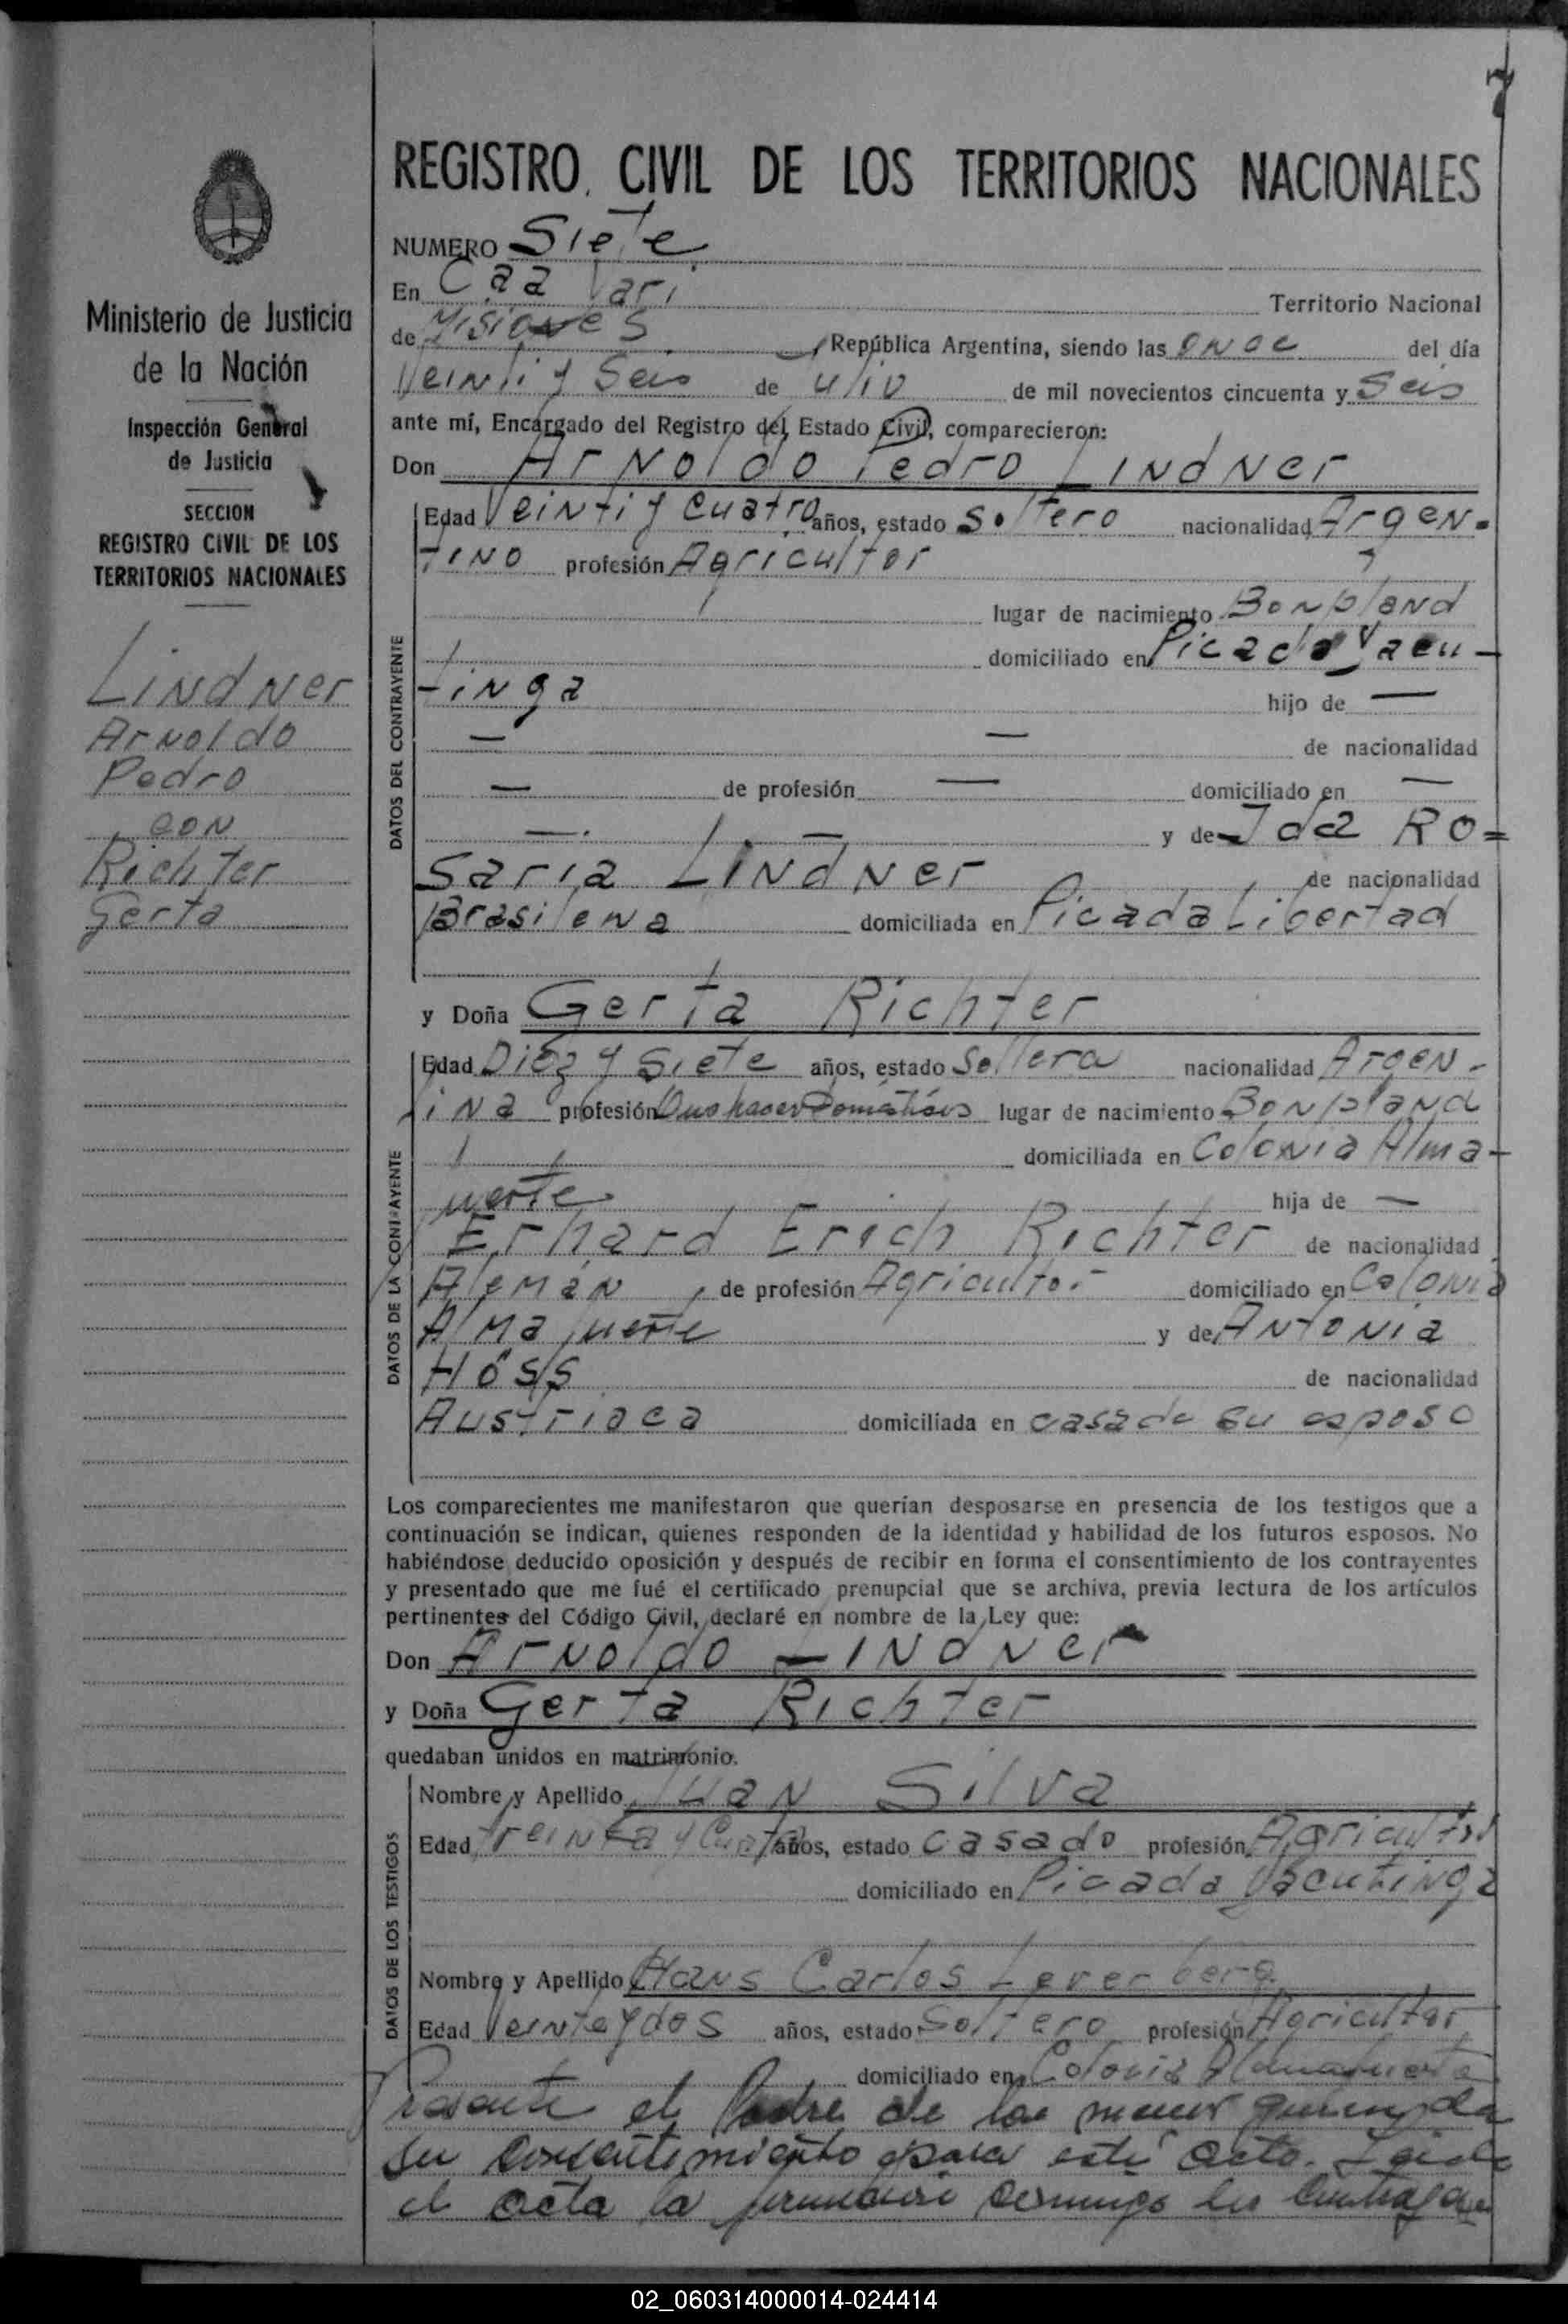 7
REGISTRO CIVIL DE LOS TERRITORIOS NACIONALES
NUMERO Siete
En Caa Yari
Territorio Nacional
de Misiones, República Argentina, siendo las once del día
Veinti y Seis de Julio de mil novecientos cincuenta y Seis
ante mí, Encargado del Registro del Estado Civil, comparecieron:
Don Arnoldo Pedro Lindner
Ministerio de Justicia
de la Nación
Inspección General
de Justicia
SECCION
REGISTRO CIVIL DE LOS
TERRITORIOS NACIONALES
Lindner
Arnoldo
Pedro
con
Richter
Gerta
DATOS DEL CONTRAYENTE
Edad Veinti y cuatro años, estado Soltero nacionalidad Argen-
tino profesión Agricultor
lugar de nacimiento Bonpland
domiciliado en Picada Yacu-
tinga hijo de —
— — de nacionalidad
— de profesión — domiciliado en —
— . — y de Ida Ro=
saria Lindner de nacionalidad
Brasilena domiciliada en Picada Libertad
y Doña Gerta Richter
DATOS DE LA CONTRAYENTE
Edad Diez y Siete años, estado Soltera nacionalidad Argen-
tina profesión Quehaceres Domésticos lugar de nacimiento Bonpland
domiciliada en Colonia Alma-
fuerte hija de —
Erhard Erich Richter de nacionalidad
Alemán, de profesión Agricultor domiciliado en Colonia
Almafuerte y de Antonia
Höss de nacionalidad
Austriaca domiciliada en casa de su esposo
Los comparecientes me manifestaron que querían desposarse en presencia de los testigos que a
continuación se indican, quienes responden de la identidad y habilidad de los futuros esposos. No
habiéndose deducido oposición y después de recibir en forma el consentimiento de los contrayentes
y presentado que me fué el certificado prenupcial que se archiva, previa lectura de los artículos
pertinentes del Código Civil, declaré en nombre de la Ley que:
Don Arnoldo Lindner
y Doña Gerta Richter
quedaban unidos en matrimonio.
DATOS DE LOS TESTIGOS
Nombre y Apellido Juan Silva
Edad treinta y Cuatro años, estado casado profesión Agricultor
domiciliado en Picada Yacutinga
Nombre y Apellido Hans Carlos Leverberg
Edad Veinteydos años, estado Soltero profesión Agricultor
domiciliado en Colonia Almafuerte
Presente el Padre de la menor quien da
su consentimiento para este acto. Leida
el acta la firmaron conmigo los contrayen
02_060314000014-024414